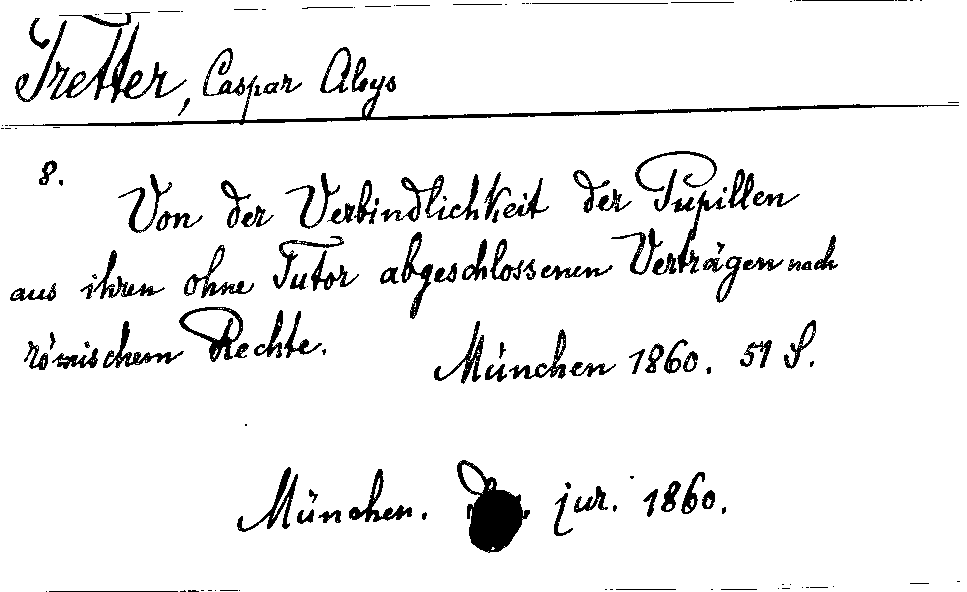 Tretter, Caspar Aloys
8.
Von der Verbindlichkeit der Pupillen
aus ihren ohne Tutor abgeschlossenen Verträgen nach
römischem Rechte.
München 1860. 51 S.
München. jur. 1860.